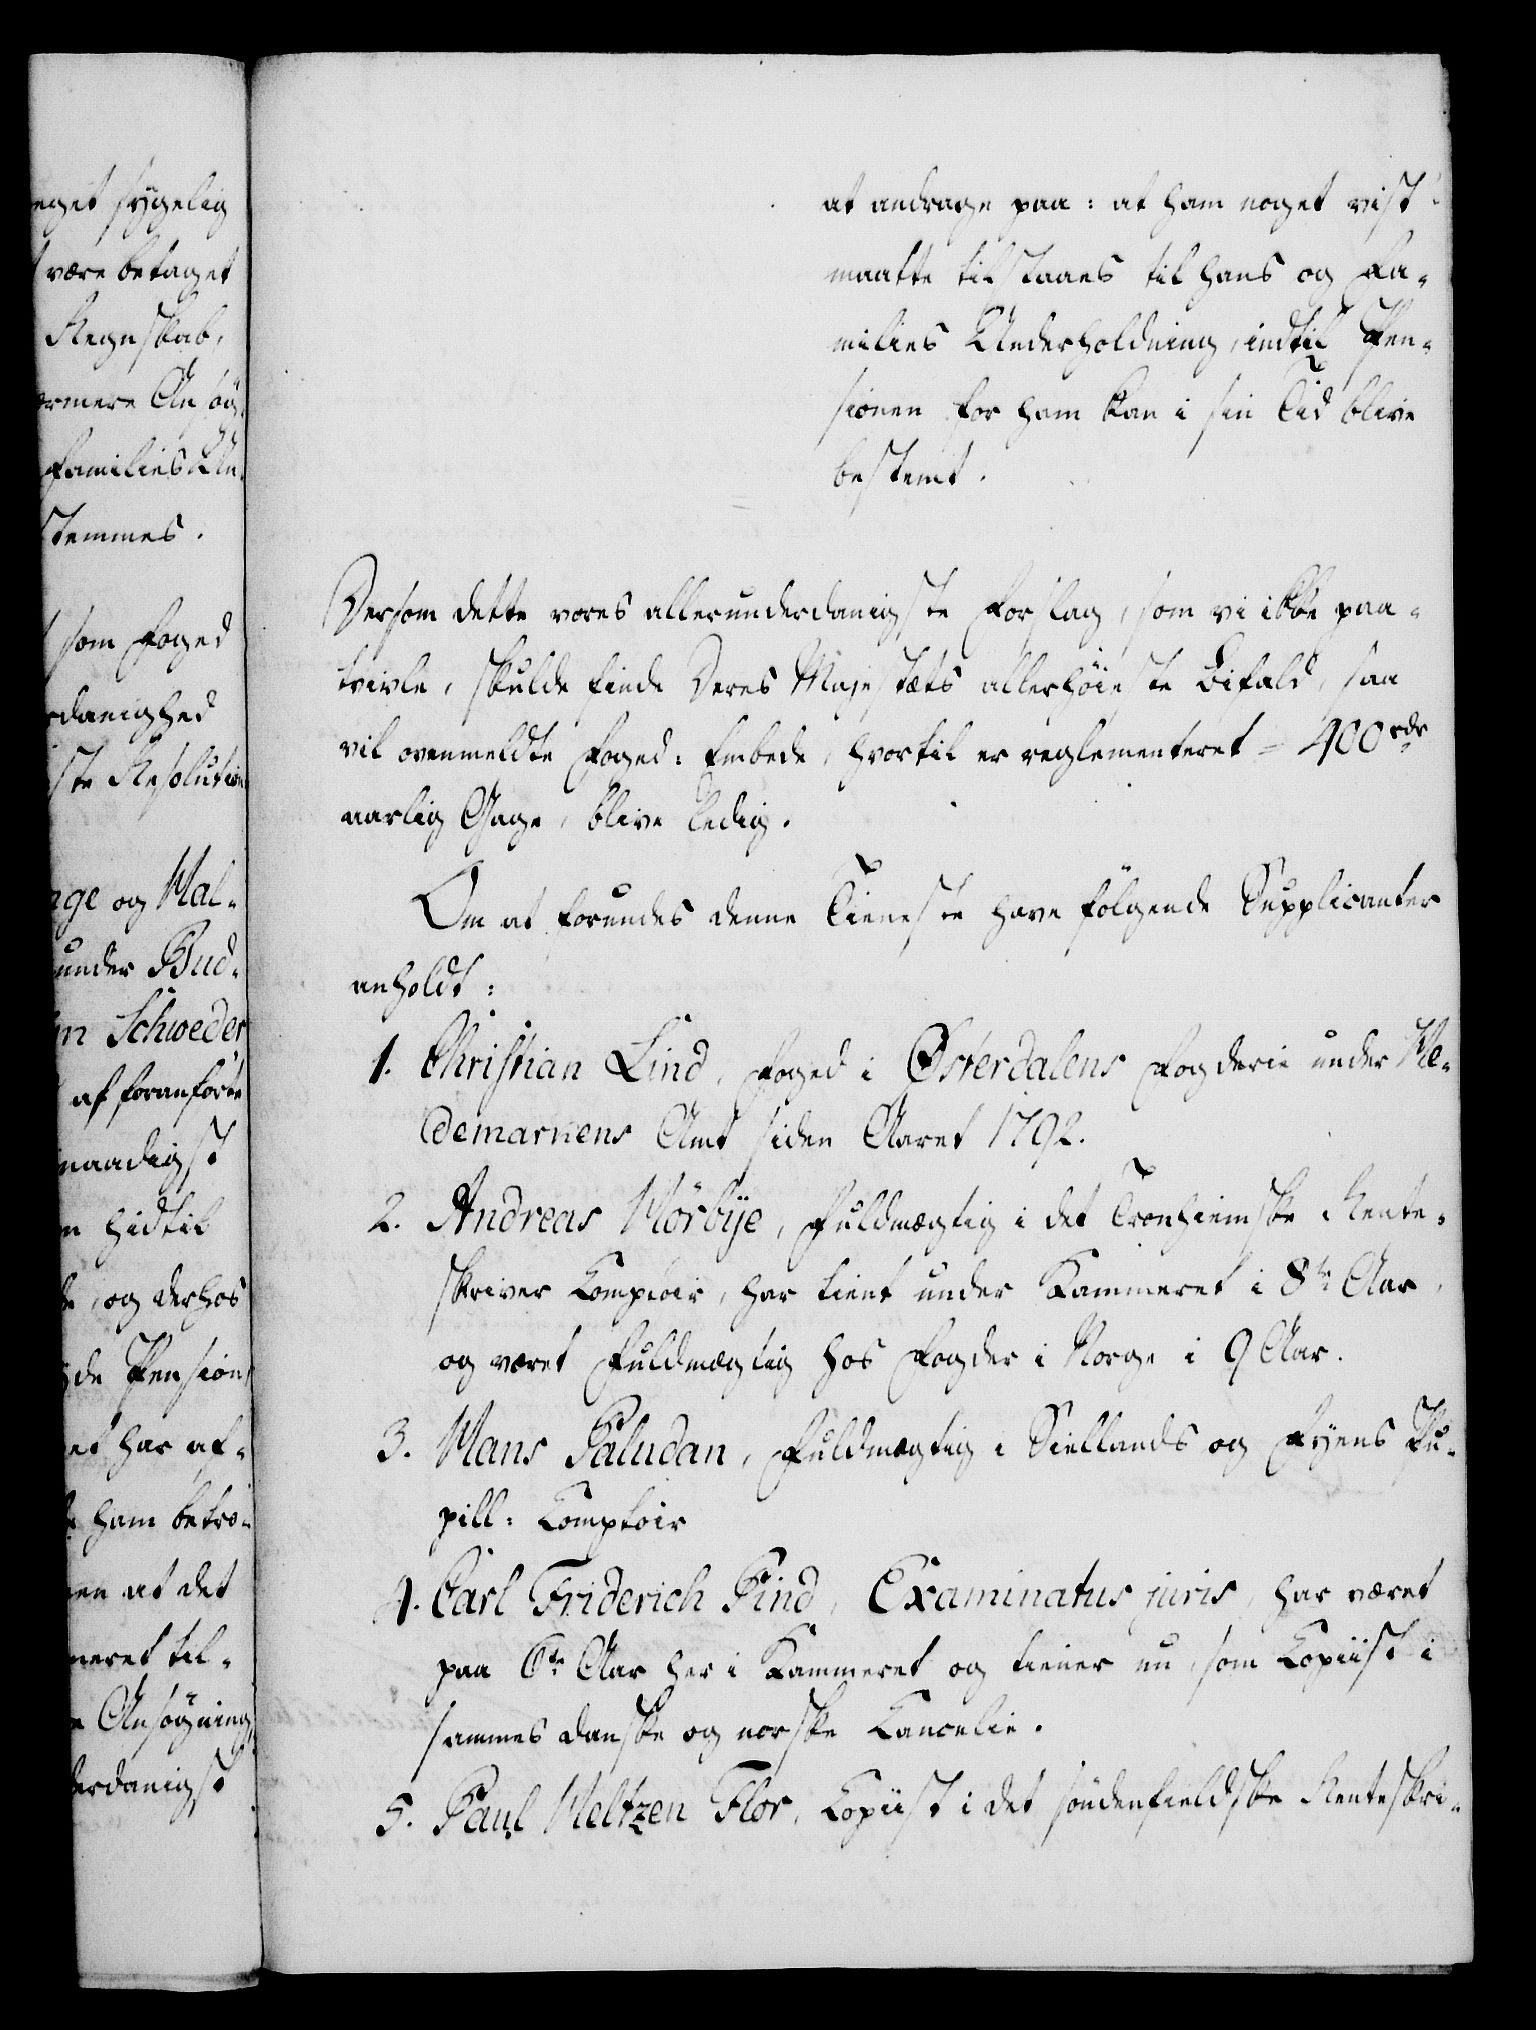 eget sygelig
være betaget
Regnskab,
ermere Ansøg
Families Un¬
stemmes.
som Foged
rdanighed
ste Resolution
nge og Hal¬
under Bud¬
Schweder
af foranførte
naadigst
hidtil
og derhos
de Pension
et har af¬
ham betro¬
en at det
meret til¬
Ansøgning
derdanigst
at andrage paa: at ham noget vist
maatte tilstaaes til hans og Fa¬
milies Underholdning, indtil Pen¬
sionen for ham kan i sin Tid blive
bestemt.
Dersom dette vores allerunderdanigste Forslag, som vi ikke paa¬
tvivle, skulde finde Deres Majestæts allerhøieste Bifald, saa
vil ovenmeldte Foged: Embede, hvortil er reglementeret = 400 rdr
aarlig Gage, blive ledig.
Om at forundes denne Tieneste have følgende Supplicanter
anholdt:
1. Christian Lind, Foged i Østerdalens Fogderie under He¬
demarkens Amt siden Aaret 1792.
2. Andreas Mörbÿe, Fuldmægtig i det Tronhiemske Rente¬
skriver Comptoir, har tient under Kammeret i 8te Aar,
og været Fuldmægtig hos Fogder i Norge i 9 Aar.
3. Hans Paludan, Fuldmægtig i Siellands og Fyens Pu¬
pill: Comptoir
4. Carl Friderich Pind, Examinatus juris, har været
paa 6te Aar her i Kammeret og tiener nu som Copiist i
sammes danske og norske Cancelie.
5. Paul Heltzen Flor, Copiist i det søndenfieldske Renteskri¬